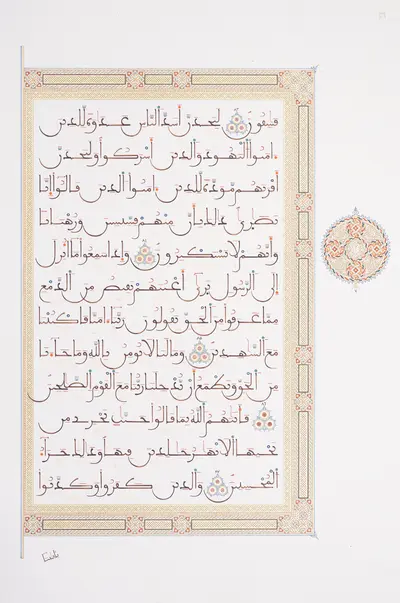 فسقون لتجدن أشد الناس عدوة للذين
ءامنوا اليهود والذين أشركوا ولتجدن
أقربهم مودة للذين ءامنوا الذين قالوا إنا
نصرى ذلك بأن منهم قسيسين ورهبانا
وأنهم لا يستكبرون وإذا سمعوا ما أنزل
إلى الرسول ترى أعينهم تفيض من الدمع
مما عرفوا من الحق يقولون ربنا ءامنا فاكتبنا
مع الشهدين وما لنا لا نؤمن بالله وما جاءنا
من الحق ونطمع أن يدخلنا ربنا مع القوم الصلحين
فأثبهم الله بما قالوا جنت تجرى من
تحتها الأنهر خلدين فيها وذلك جزاء
المحسنين والذين كفروا وكذبوا